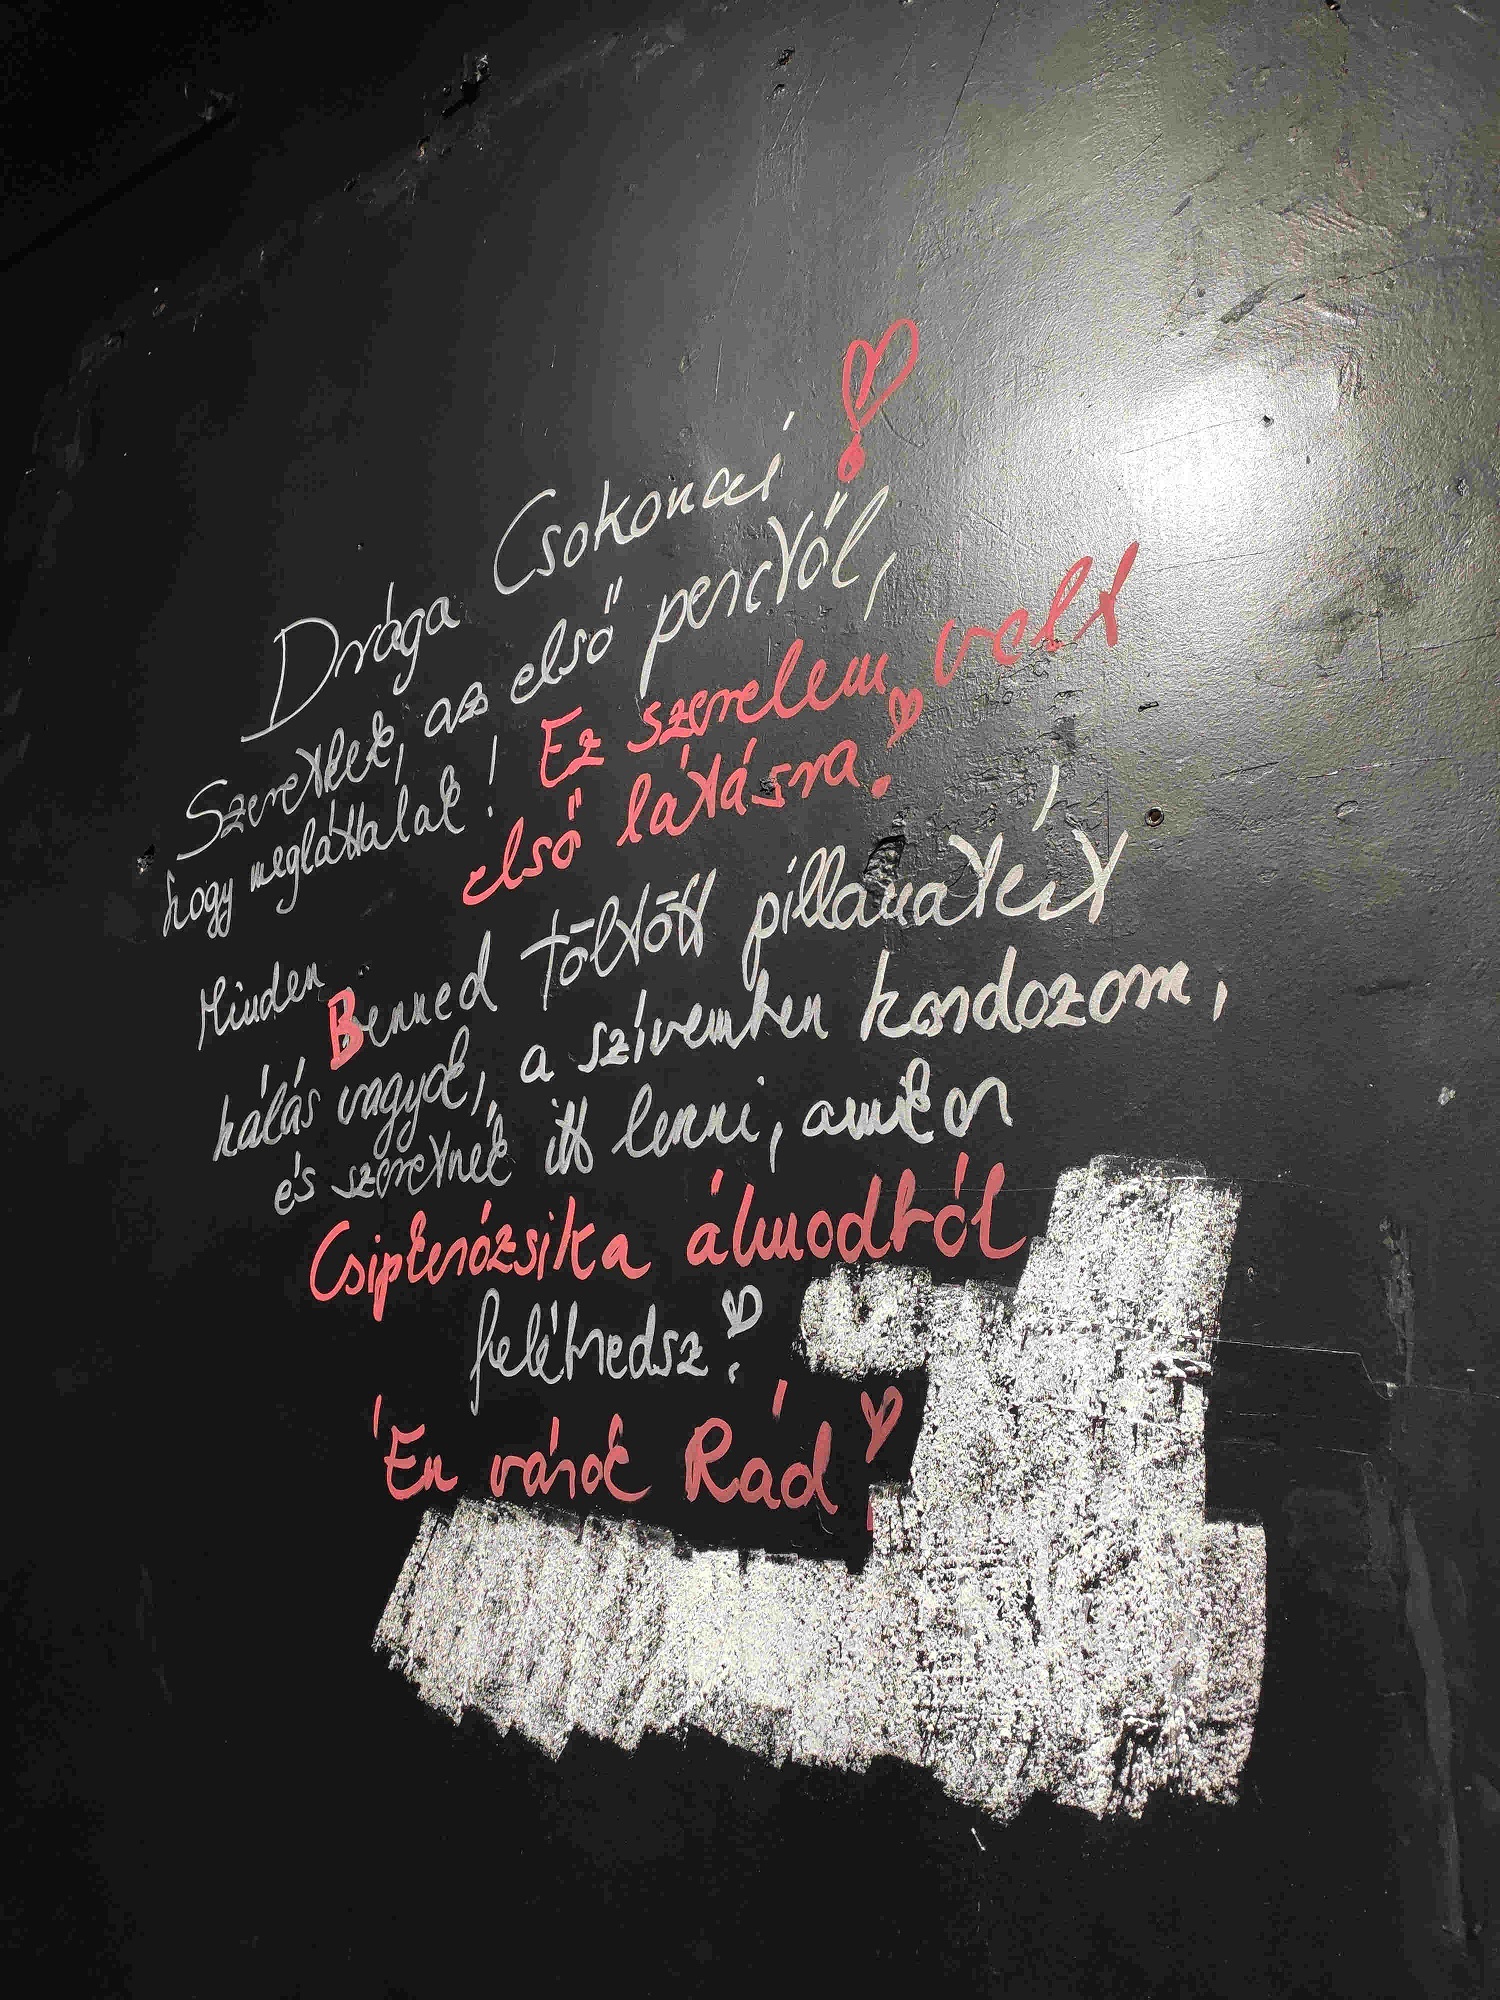 Drága Csokonai!
Szeretlek, az első perctől,
hogy megláttalak! Ez szerelem volt
első látásra!
Minden
Benned töltött pillanatért
hálás vagyok, a szívemben hordozom,
és szeretnék itt lenni, amikor
Csipkerózsika álmodból
felébredsz!
Én várok Rád!